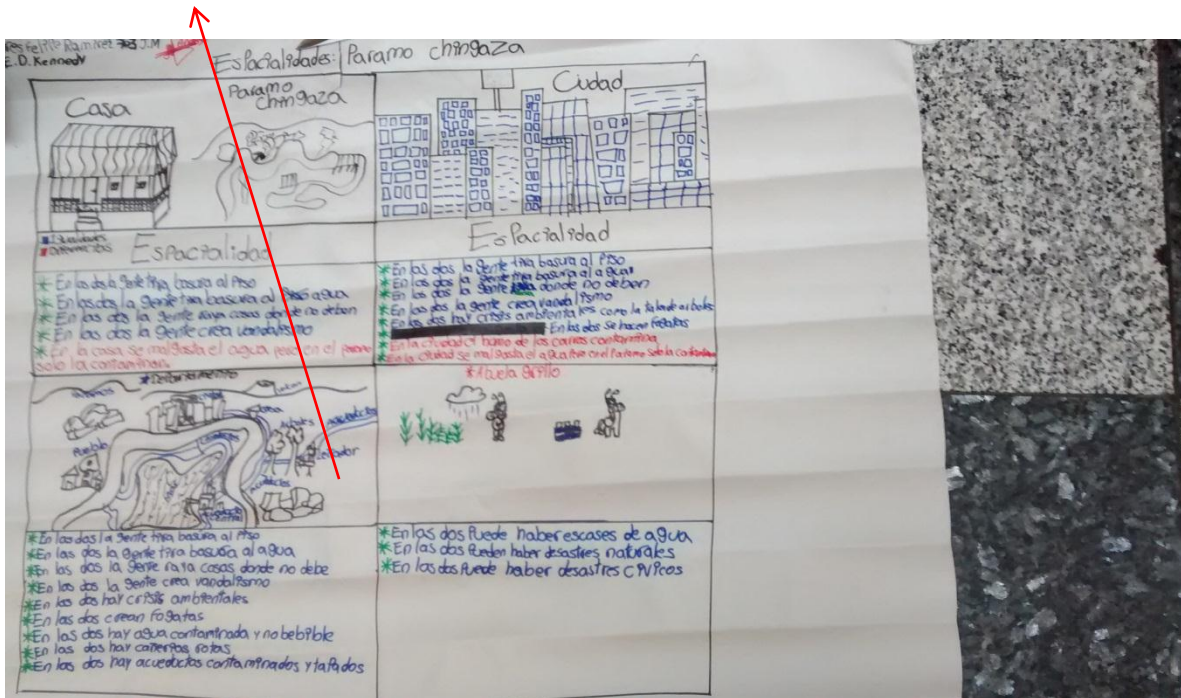 Felipe Ramirez 703 J.M
E.D. Kennedy
Espacialidades: Paramo chingaza
Casa
Paramo
chingaza
Ciudad
Igualdades
Diferencias
Espacialidad
* En las dos la gente tira basura al Piso
* En las dos la gente tira basura al agua
* En las dos la gente raya cosas donde no deben
* En las dos la gente crea vandalismo
* En la casa se malgasta el agua pero en el paramo
solo la contaminan.
Espacialidad
* En las dos la gente tira basura al Piso
* En las dos la gente tira basura al agua
* En las dos la gente donde no deben
* En las dos la gente crea vandalismo
* En las dos hay crisis ambientales como la tala de arboles
En las dos se hacen fogatas
* En la ciudad el humo de los carros contamina
* En la ciudad se malgasta el agua Pero en el Paramo solo la contaminan
Arboles
Pueblo
* En las dos la gente tira basura al Piso
* En las dos la gente tira basura al agua
* En las dos la gente raya cosas donde no debe
* En las dos la gente crea vandalismo
* En las dos hay crisis ambientales
* En las dos crean fogatas
* En las dos hay agua contaminada y no bebible
* En las dos hay cañerias rotas
* En las dos hay acueductos contaminados y tapados
* Abuela grillo
* En las dos Puede haber escases de agua
* En las dos Pueden haber desastres naturales
* En las dos Puede haber desastres Civicos